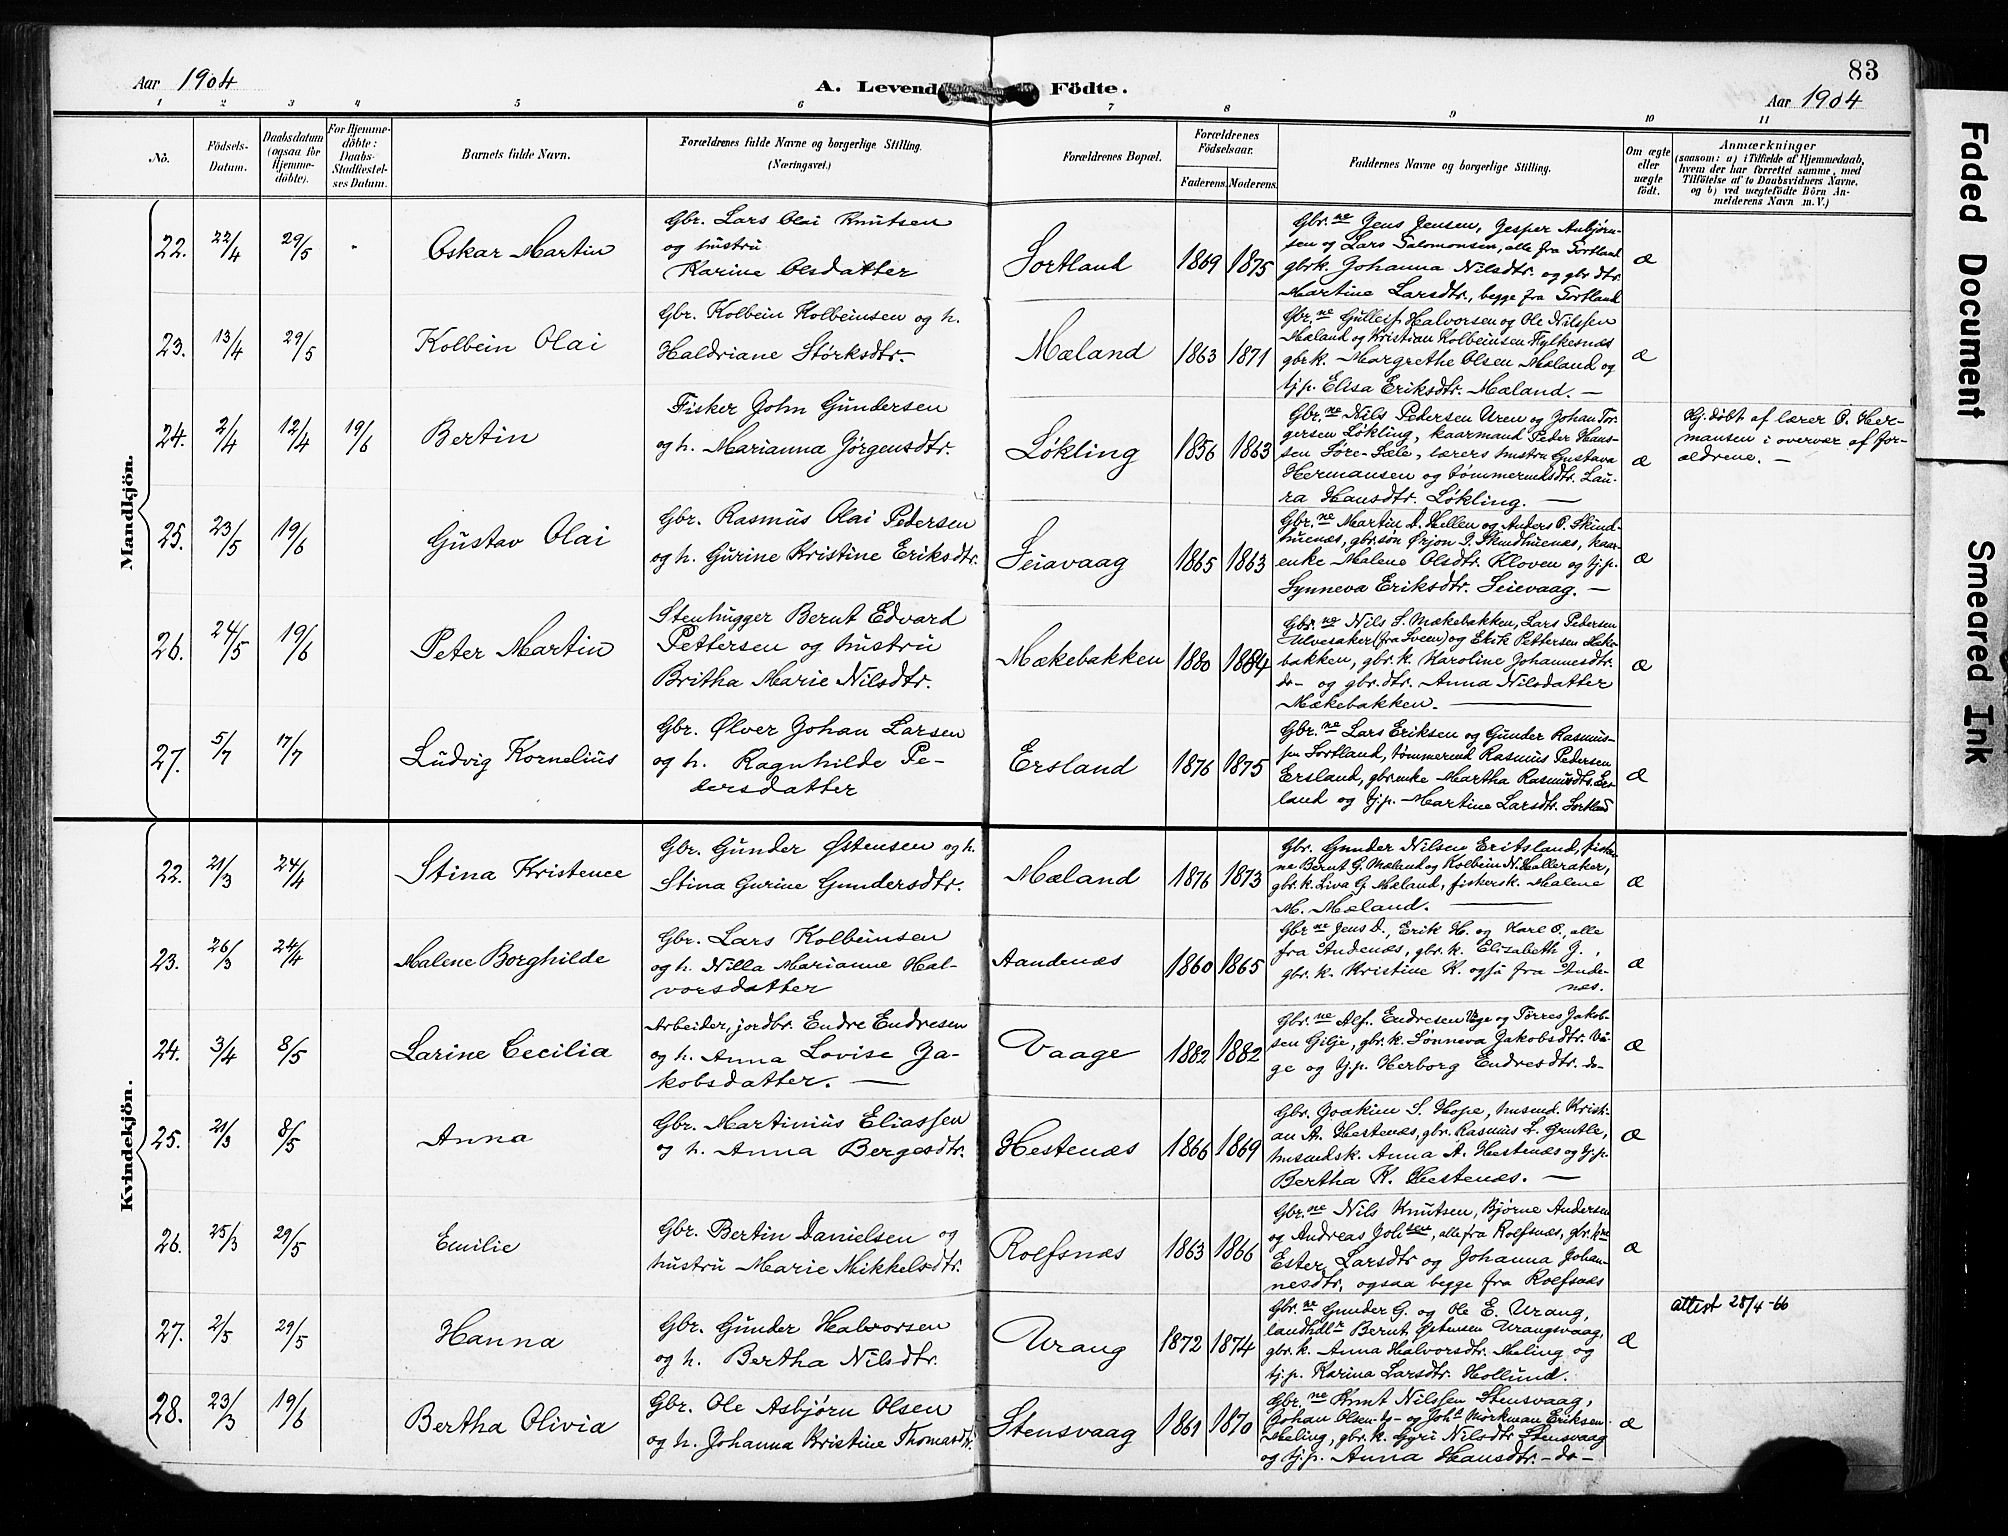 83
Aar 1904
A. Levende Födte.
Aar 1904
1 2 3 4 5 6 7 8 9 10 11
No.
Födsels-
Datum.
Daabsdatum
(ogsaa for
Hjemme-
döbte).
For Hjemme-
döbte:
Daabs-
Stadfæstel-
ses Datum.
Barnets fulde Navn.
Forældrenes fulde Navne og borgerlige Stilling.
(Næringsvei.)
Forældrenes Bopæl.
Forældrenes
Födselsaar.
Faderens. Moderens.
Faddernes Navne og borgerlige Stilling.
Om ægte
eller
uægte
födt.
Anmærkninger
(saasom: a) i Tilfælde af Hjemmedaab,
hvem der har forrettet samme, med
Tilföielse af to Daabsvidners Navne,
og b) ved uægtefödte Börn An-
melderens Navn m. V.)
Mandkjön.
22. 22/4 29/5 Oskar Martin
Gbr. Lars Olai Knutsen
og hustru
Karine Olsdatter
Sortland 1869 1875
Gbr.ne Jens Jensen, Jesper Asbjørn-
sen og Lars Salomonsen, alle fra Sortland
gbrk. Johanna Nilsdtr. og gbr dtr.
Martine Larsdtr., begge fra Sortland
Æ
23. 13/4 29/5 Kolbein Olai
Gbr. Kolbein Kolbeinsen og h.
Haldriane Størksdtr.
Mæland 1863 1871
Gbr.ne Gulleif Halvorsen og Ole Nilssen
Mæland og Kristian Kolbeinsen Fylkesnæs
gbrk. Margrethe Olsen Mæland og
tj.p. Elisa Eriksdtr. Mæland. —
Æ
24. 2/4 12/4 19/6 Bertin
Fisker John Gundersen
og h. Marianna Jörgensdtr.
Løkling 1856 1863
Gbr.ne Nils Pedersen Uren og Johan Tor-
gersen Løkling, kaarmand Peder Hans-
sen Søre-Sæle, lærers hustru Gustava
Hermansen og tømmermdsdtr. Lau-
ra Hansdtr. Løkling. —
Æ
Hj. døbt af lærer P. Her-
mansen i overvær af for-
ældrene. —
25. 23/5 19/6 Gustav Olai
Gbr. Rasmus Olai Pedersen
og h. Gurine Kristine Eriksdtr.
Seiavaag 1865 1863
Gbr.ne Martin A. Hellen og Anders P. Skind-
huenæs, gbr.søn Ørjon P. Skindhuenæs, kaar-
enke Malene Olsdtr. Kloven og tj.p.
Synneva Eriksdtr. Seievaag. —
Æ
26. 24/5 19/6 Peter Martin
Stenhugger Bernt Edvard
Pettersen og hustru
Britha Marie Nilsdtr.
Mækebakken 1880 1884
Gbr.ne Nils S. Mækebakken, Lars Pedersen
Ulvesaker (fra Sveen) og Erik Pettersen Mæke-
bakken, gbr. k. Karoline Johannesdtr.
do- og gbr. dtr. Anna Nilsdatter
Mækebakken. —
Æ
27. 5/7 17/7 Ludvig Kornelius
Gbr. Ølver Johan Larsen
og h. Ragnhilde Pe-
dersdatter
Ersland 1876 1875
Gbr.ne Lars Eriksen og Gunder Rasmus-
sen Sortland, tømmermd Rasmus Pedersen
Ersland, gbrenke Martha Rasmusdtr. Ers-
land og tj.p. Martine Larsdtr. Sortland
Æ
Kvindekjön.
22. 21/3 24/4 Stina Kristence
Gbr. Gunder Østensen og h.
Stina Gurine Gundersdtr.
Mæland 1876 1873
Gbr. Gunder Nilsen Eritsland, fisker-
ne Bernt G. Mæland og Kolbein N. Halleraker,
gbr. k. Liva G. Mæland, fiskersk. Malene
M. Mæland. —
Æ
23. 26/3 24/4 Malene Borghilde
Gbr. Lars Kolbeinsen
og h. Nilla Marianne Hal-
vorsdatter
Aandenæs 1860 1865
Gbr.ne Jens D., Erik H. og Karl P., alle
fra Andenæs, gbr. k. Elizabeth J.,
gbr. k. Kristine K. ogsu fra Ande-
næs.
Æ
24. 3/4 8/5 Larine Cecilia
Arbeider, jordbr. Endre Endresen
og h. Anna Lovise Ja-
kobsdatter. —
Vaage 1882 1882
Gbr.ne Alf. Endresen Vage og Torres Jakob-
sen Gilje, gbr. k. Sønneva Jakobsdtr. Vå-
ge og tj.p. Herborg Endresdtr. do-
Æ
25. 21/3 8/5 Anna
Gbr. Martinius Eliassen
og h. Anna Bergesdtr.
Hestenæs 1866 1869
Gbr. Joakim S. Hope, husmd. Kristi-
an A. Hestenæs, gbr. Rasmus L. Grutle,
husmdsk. Anna A. Hestenæs og tj.p.
Bertha K. Hestenæs. —
Æ
26. 25/3 29/5 Emilie
Gbr. Bertin Danielsen og
hustru Marie Mikkelsdtr.
Rolfsnæs 1863 1866
Gbr.ne Nils Knutsen, Bjørne Andersen
og Andreas Johsen, alle fra Rolfsnæs, gbr. kne
Ester Larsdtr og Johanna Johan-
nesdtr, ogsaa begge fra Rolfsnæs
Æ
27. 2/5 29/5 Hanna
Gbr. Gunder Halvorsen
og h. Bertha Nilsdtr.
Urang 1872 1874
Gbr.ne Gunder G. og Ole E. Urang,
landhdlr Bernt Østensen Urangsvaag,
gbr. k. Anna Halvorsdtr. Meling og
tj.p. Karina Larsdtr. Hollund.
Æ
attest 28/4-66
28. 23/3 19/6 Bertha Olivia
Gbr. Ole Asbjørn Olsen
og h. Johanna Kristine Thomasdtr.
Stensvaag 1861 1870
Gbr.ne Knut Nilssen Stensvaag,
Johan Olsen do- og Joht Mørkman Eriksen
Meling, gbr. k. Gyri Nilsdtr Stensvaag
og tj.p. Anna Hansdtr. -do-
Æ
Faded Document
Smeared Ink